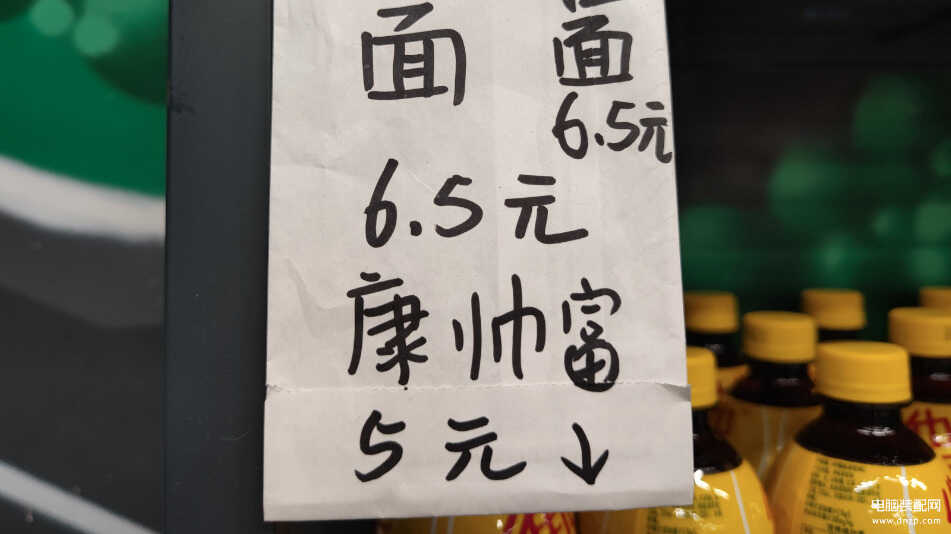 面 面
6.5元
6.5元
康帅富
5元↓
电脑装配网
www.dnzp.com